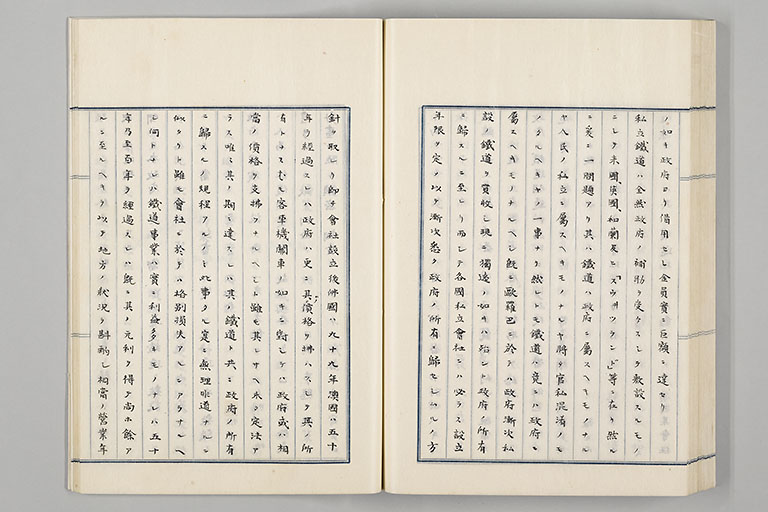 ノ如キ政府ヨリ借用セシ金員實ニ巨額ニ達セリ
私立鐵道ハ全然政府ノ補助ヲ受ケスシテ敷設スルモノ
ニシテ米國英國和蘭及ヒ「スウ井ツツランド」等ニ在リ然ル
ニ茲ニ一問題アリ其ハ鐵道ハ政府ニ屬スヘキモノナル
ヤ人民ノ私立ニ屬スヘキモノナルヤ將タ官私混淆ノモ
ノタルヘキヤノ一事ナリ然レトモ鐵道ハ竟ニハ政府ニ
屬スヘキモノナルヘシ既ニ歐羅巴ニ於テハ政府漸次私
設ノ鐵道ヲ買收シ現ニ獨逸ノ如キハ殆ント政府ノ所有
ニ歸スルニ至レリ而シテ各國私立會社ニハ必ラス設立
年限ヲ定メ以テ漸次悉ク政府ノ所有ニ歸セシムルノ方
針ヲ取レリ即チ會社設立後佛國ハ九十九年澳國ハ五十
年ヲ經過スレハ政府ハ更ニ其價格ヲ拂ハスシテ其ノ所
有トナス尤モ客車機關車ノ如キニ對シテハ政府或ハ相
當ノ價格ヲ支拂フナルヘシト雖モ其レサヘ未タ定法ア
ラス唯ニ其ノ期ニ達スレハ其ノ鐵道ヲ共ニ政府ノ所有
ニ歸スルノ規程アルノミ此事タル定ニ無理非道ナルニ
似タリト雖モ會社ニ於テハ格別損失アルニアラサルヘ
シ何トナレハ鐵道事業ハ實ニ利益多キモノナレハ五十
年乃至百年ヲ經過スレハ既ニ其ノ元利ヲ得テ尚ホ餘ア
ルニ至ルヘキヲ以テ地方ノ状況ヲ斟酌シ相當ノ營業年